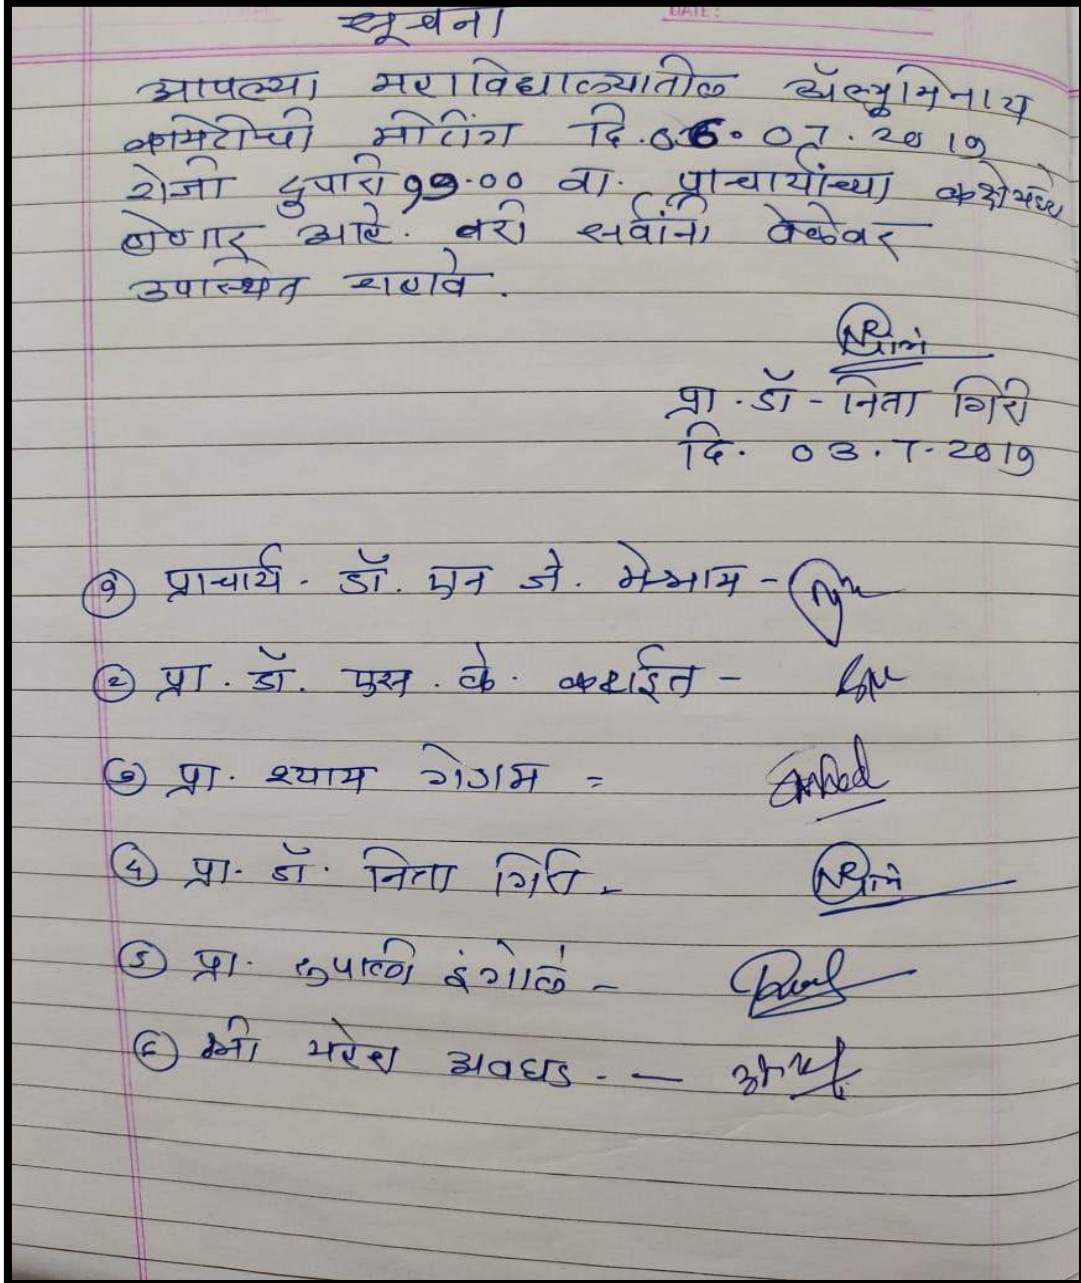 सूचना
DATE:
आपल्या महाविद्यालयातील अॅल्युमिनाय
कमिटीची मीटिंग दि. 06.07.2019
रोजी दुपारी 99.00 वा. प्राचार्यांच्या कक्षेमध्ये
होणार आहे. तरी सर्वांनी वेळेवर
उपस्थित राहावे.
प्रा. डॉ - निता गिरी
दि. 03.7.2019
१ प्राचार्य. डॉ. एन जे. मेश्राम -
२ प्रा. डॉ. एस. के. -
३ प्रा. श्याम गेडाम =
4 प्रा. डॉ. निता गिरी -
5 प्रा. रुपाली इंगोले -
६ श्री अवघड. -